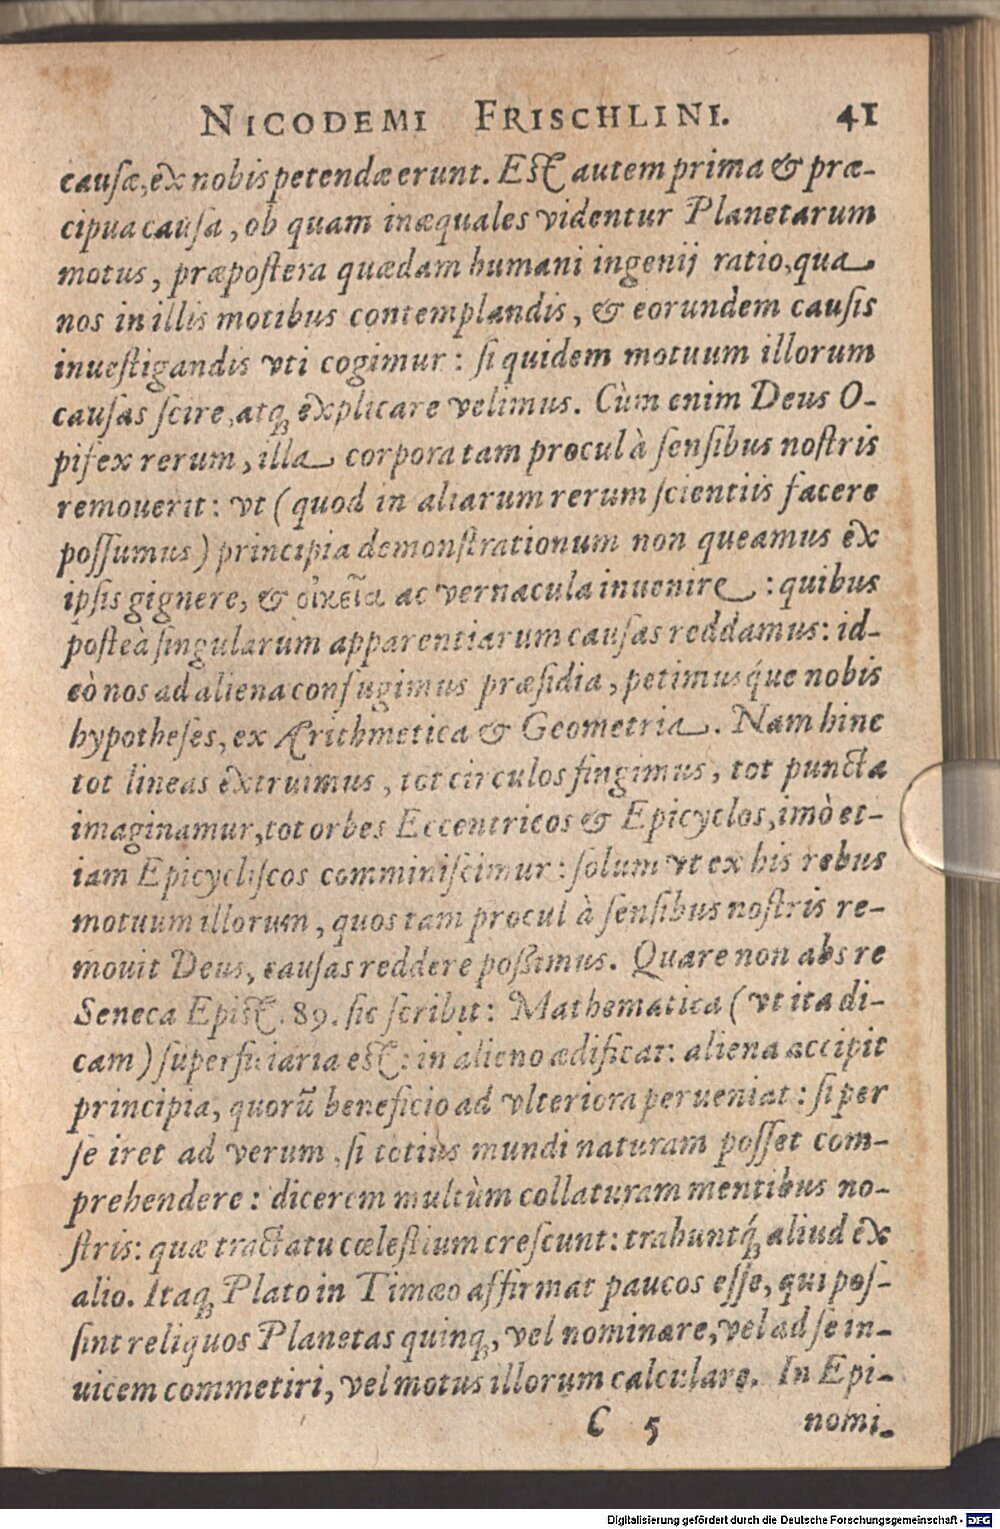 NICODEMI FRISCHLINI. 41
cauſæ, ex nobis petendæ erunt. Eſt autem prima & præ-
cipua cauſa, ob quam inæquales videntur Planetarum
motus, præpoſtera quædam humani ingenij ratio, qua
nos in illis motibus contemplandis, & eorundem cauſis
inueſtigandis vti cogimur: ſi quidem motuum illorum
cauſas ſcire, atq; explicare velimus. Cùm enim Deus O-
pifex rerum, illa corpora tam procul à ſenſibus noſtris
remouerit: vt (quod in aliarum rerum ſcientiis facere
poſſumus) principia demonſtrationum non queamus ex
ipſis gignere, & οἰκεῖα ac vernacula inuenire: quibus
poſtea ſingularum apparentiarum cauſas reddamus: id-
eò nos ad aliena confugimus præſidia, petimusq́ue nobis
hypotheſes, ex Arithmetica & Geometria. Nam hinc
tot lineas extruimus, tot circulos fingimus, tot puncta
imaginamur, tot orbes Eccentricos & Epicyclos, imò et-
iam Epicycliſcos comminiſcimur: ſolum vt ex his rebus
motuum illorum, quos tam procul à ſenſibus noſtris re-
mouit Deus, cauſas reddere poßimus. Quare non abs re
Seneca Epiſt. 89. ſic ſcribit: Mathematica (vt ita di-
cam) ſuperficiaria eſt: in alieno ædificat: aliena accipit
principia, quorũ beneficio ad vlteriora perueniat: ſi per
ſe iret ad verum, ſi totius mundi naturam poſſet com-
prehendere: dicerem multùm collaturam mentibus no-
ſtris: quæ tractatu cœleſtium creſcunt: trahuntq́; aliud ex
alio. Itaq; Plato in Timæo affirmat paucos eſſe, qui poſ-
ſint reliquos Planetas quinq;, vel nominare, vel ad ſe in-
uicem commetiri, vel motus illorum calculare. In Epi-
C 5 nomi-
Digitalisierung gefördert durch die Deutsche Forschungsgemeinschaft - DFG